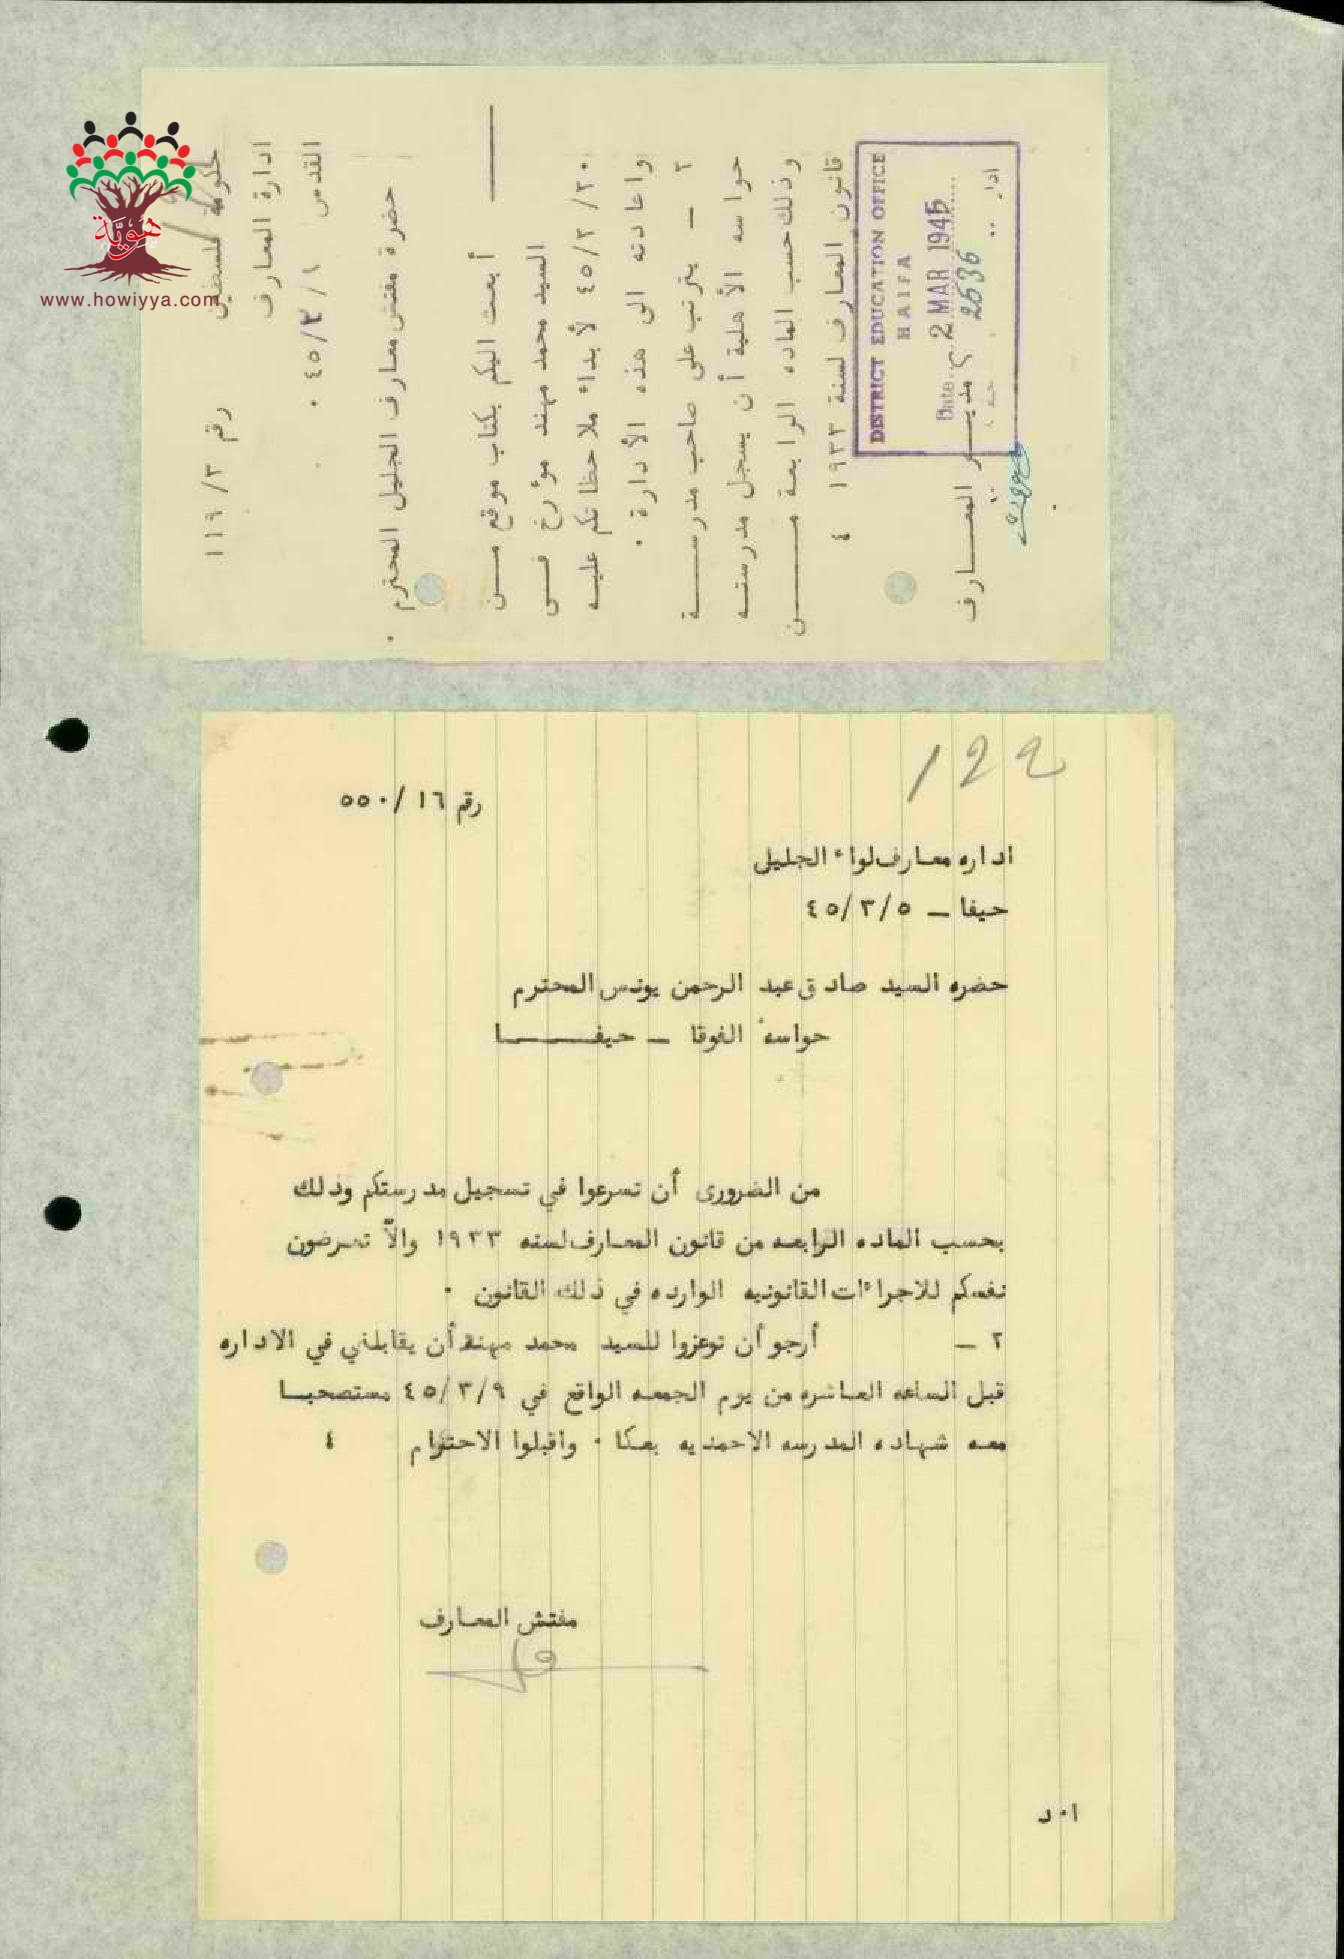 هويّة
www.howiyya.com
حكومة فلسطين
ادارة المعارف
القدس ١ /٣/ ٤٥ ٠
رقم ٣/ ١١٩
حضرة مفتش معارف الجليل المحترم ٠
أبعث اليكم بكتاب موقع مــن
السيد محمد مهند مؤرخ فــى
٤٥/٢/٢٠ لأبداء ملاحظاتكم عليــه
واعادته الى هذه الأدارة ٠
٢ - يترتب على صاحب مدرســـة
حواسه الأهلية أن يسجل مدرستــه
وذلك حسب الماده الرابعة مـــن
قانون المعارف لسنة ١٩٣٣ ٤
DISTRICT EDUCATION OFFICE
HAIFA
Date 2 MAR 1945
2636
مديــر المعــارف
122
رقم ١٦ /٥٥٠
اداره معارف لواء الجليل
حيفا – ٤٥/٣/٥
حضره السيد صادق عبد الرحمن يونس المحترم
حواسه الفوقا – حيفــــا
من الضرورى أن تسرعوا في تسجيل مدرستكم وذلك
بحسب الماده الرابعه من قانون المعارف لسنه ١٩٣٣ والاّ تعرضون
نفسكم للاجراءات القانونيه الوارده في ذلك القانون ٠
٢ – أرجو أن توعزوا للسيد محمد مهند أن يقابلني في الاداره
قبل الساعه العاشره من يوم الجمعه الواقع في ٤٥/٣/٩ مستصحبــا
معه شهاده المدرسه الاحمديه بعكا ٠ واقبلوا الاحترام ٤
مفتش المعارف
ا٠د